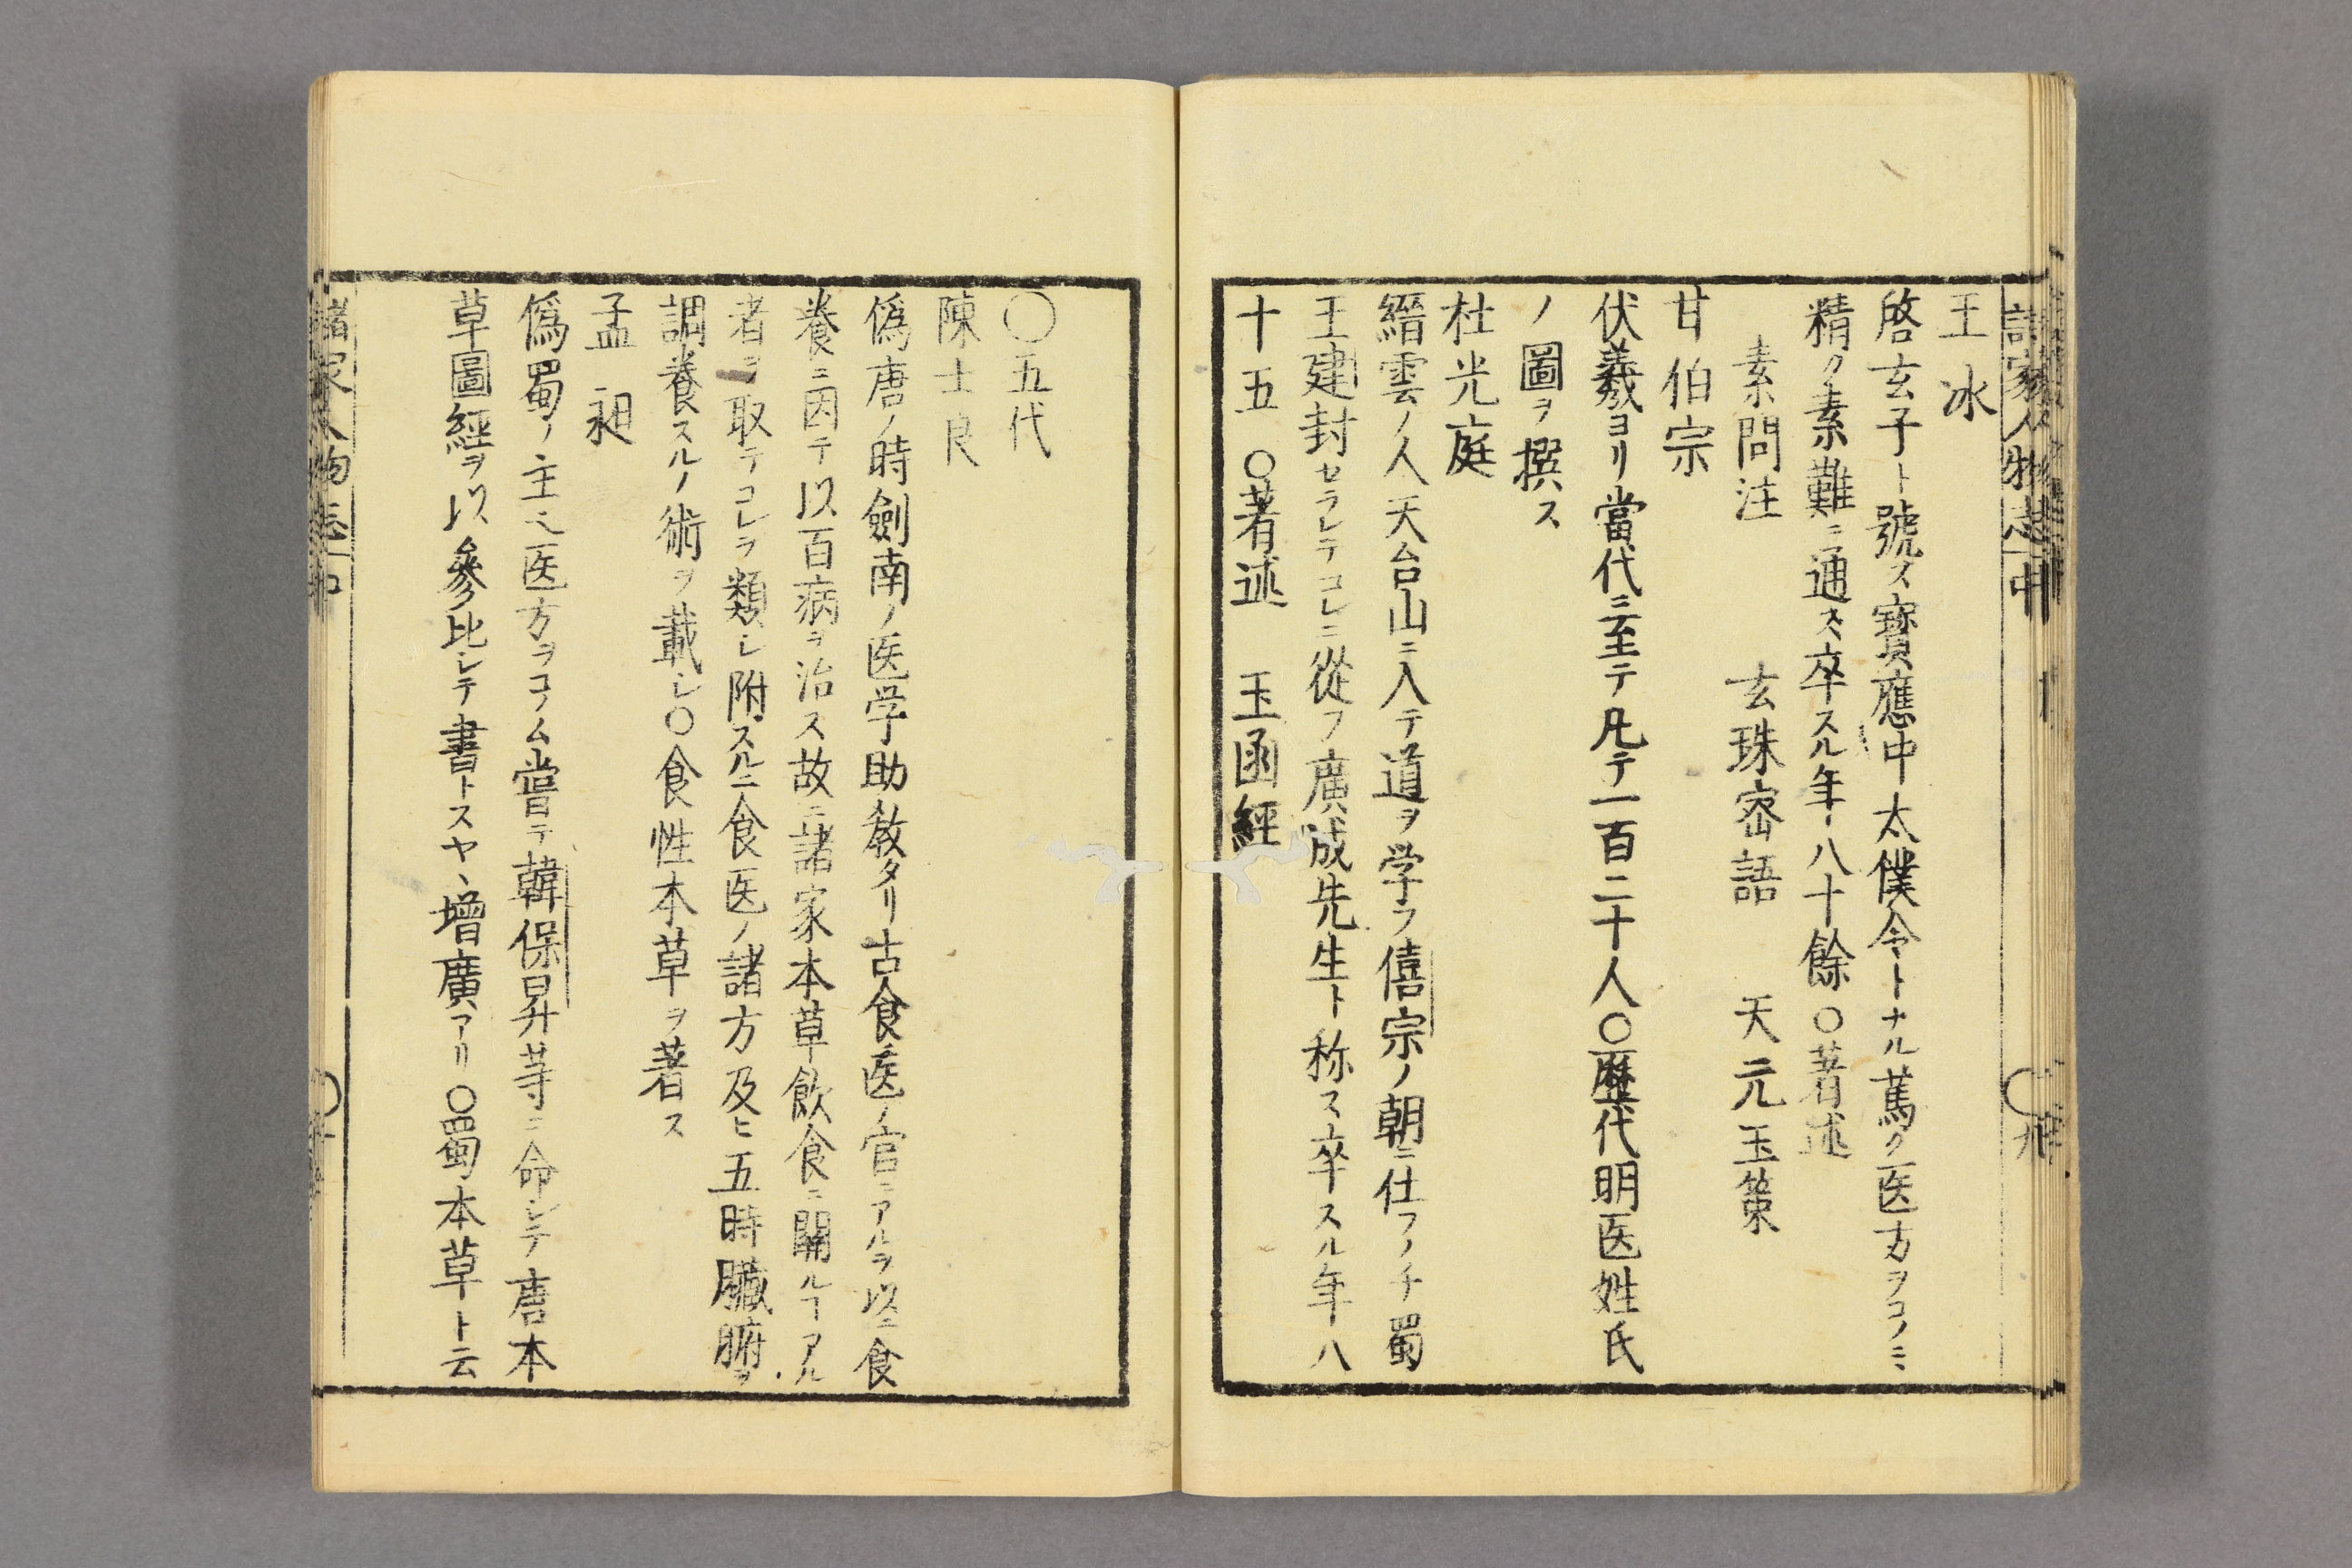 諸家人物志 中
王冰
啓玄子ト號ス寳應中太僕令トナル篤ク医方ヲコノミ
精ク素難ニ通ス卒スル年八十餘〇著述
素問注 玄珠密語 天元玉策
甘伯宗
伏羲ヨリ當代ニ至テ凡テ一百二十人〇歷代明医姓氏
ノ圖ヲ撰ス
杜光庭
縉雲ノ人天台山ニ入テ道ヲ学フ僖宗ノ朝ニ仕フノチ蜀
王建封セラレテコレニ從フ廣成先生ト称ス卒スル年八
十五〇著述 玉函經
〇五代
陳士良
僞唐ノ時劍南ノ医学助教タリ古食医ノ官ニアルヲ以ニ食
養ニ因テ以百病ヲ治ス故ニ諸家本草飲食ニ開ルヿアル
者ヲ取テコレヲ類シ附スルニ食医ノ諸方及ヒ五時臓腑ヲ
調養スルノ術ヲ載シ〇食性本草ヲ著ス
孟昶
僞蜀ノ主之医方ヲコノム嘗テ韓保昇䓁ニ命シテ唐本
草圖經ヲ以參比シテ書トスヤヽ增廣アリ〇蜀本草ト云
諸家人物志